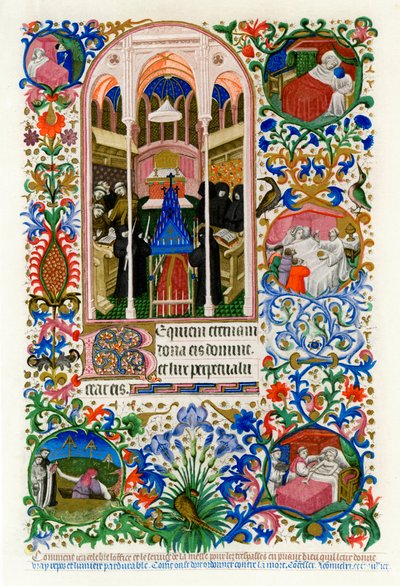 Requiem eternam
dona eis domine.
Et lux perpetua lu
ceat eis.
Comment len celebre loffice et le service de la messe pour les trespasses en priant dieu quil leur donne
vray repos et lumiere pardurable. Come on se doit ordonner contre la mort.